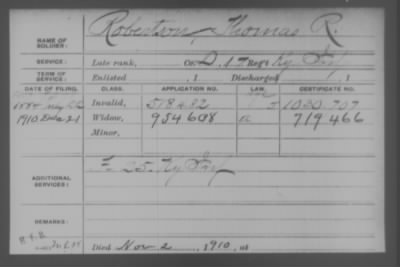 NAME OF SOLDIER: Robertson, Thomas R.
SERVICE: Late rank, Co. D, 17 Reg't Ky Inf
TERM OF SERVICE: Enlisted , 1 Discharged , 1
DATE OF FILING. CLASS. APPLICATION NO. LAW. CERTIFICATE NO.
Invalid, 518432 1020.707
1910 Dec 21 Widow, 954608 719466
Minor,
ADDITIONAL SERVICES: F 25 Ky Inf
REMARKS:
Died Nov 2, 1910, at